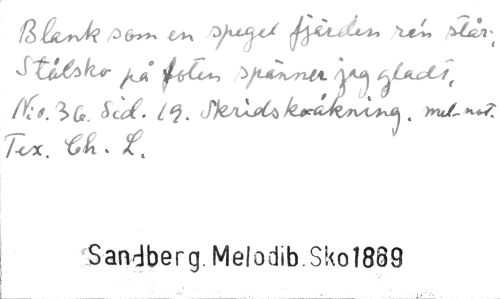 Blank som en spegel fjärden ren står;
Stålsko på foten spänner jag gladt,
No. 36. Sid. 19. Skridskoåkning. mel-not.
Tex. Ch. L.
Sandberg. Melodib. Sko1869